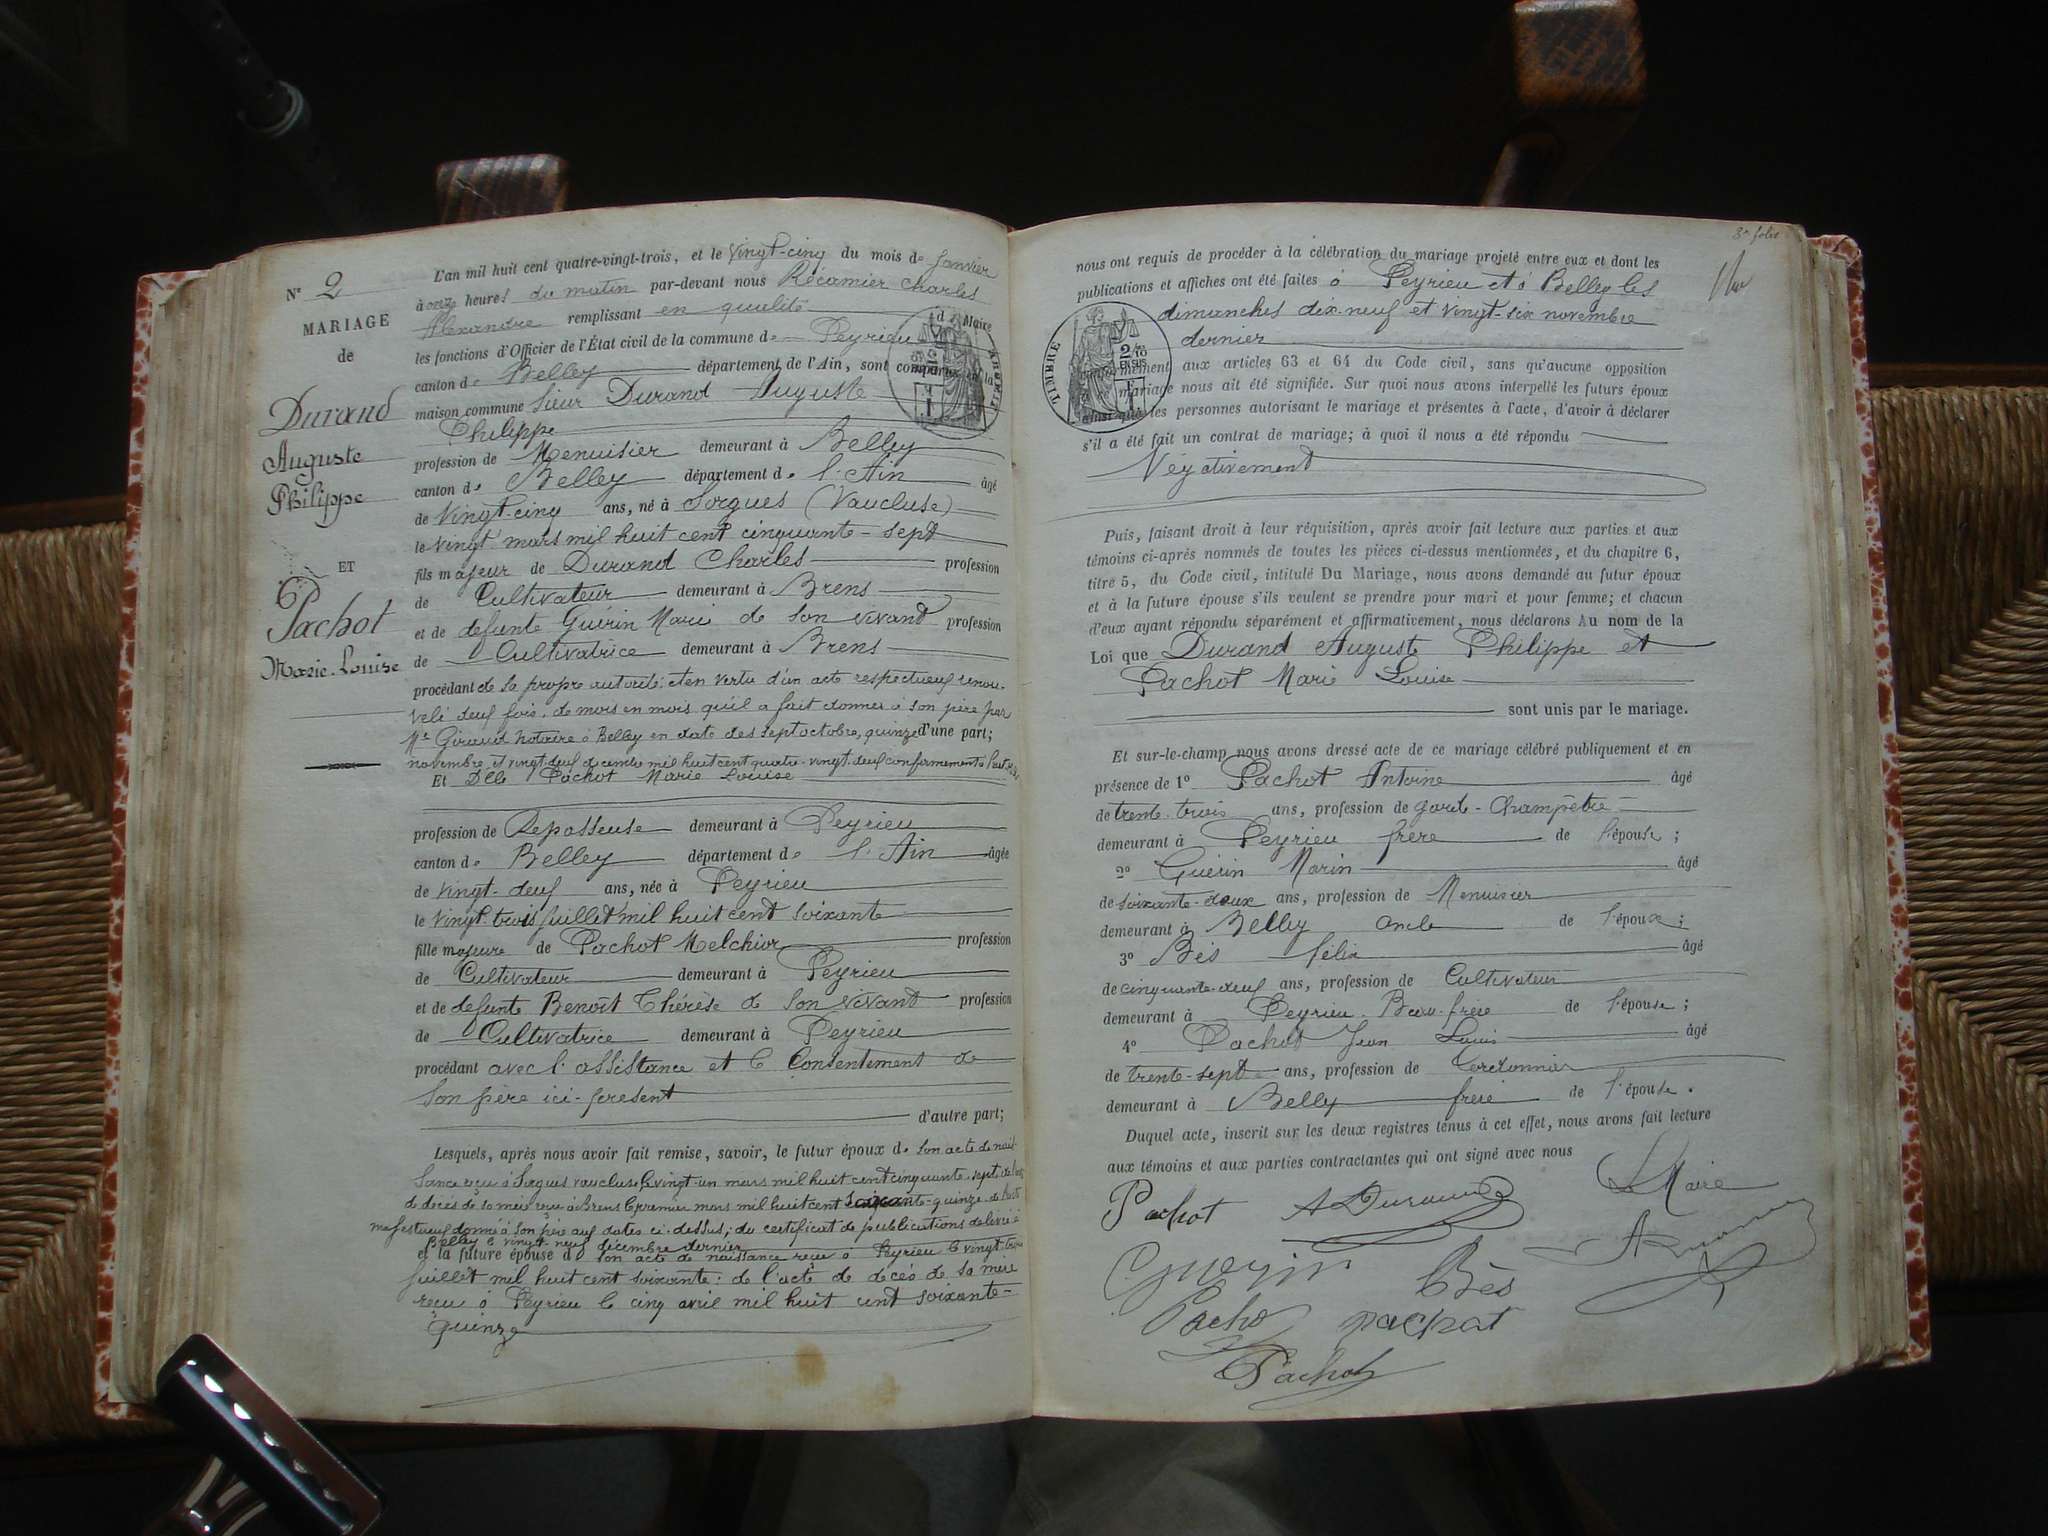 Nº 2
MARIAGE
de
Durand
Auguste
Philippe
ET
Pachot
Marie-Louise
L'an mil huit cent quatre-vingt-trois, et le vingt-cinq du mois de Janvier
à onze heures du matin par-devant nous Récamier Charles
Alexandre remplissant en qualité de Maire
les fonctions d'Officier de l'État civil de la commune de Peyrieu
canton de Belley département de l'Ain, sont comparus en la
maison commune Sieur Durand Auguste
Philippe
profession de Menuisier demeurant à Belley
canton de Belley département de l'Ain âgé
de Vingt-cinq ans, né à Sorgues (Vaucluse)
le vingt mars mil huit cent cinquante-sept
fils majeur de Durand Charles profession
de Cultivateur demeurant à Brens
et de defunte Guérin Marie de son vivant profession
de Cultivatrice demeurant à Brens
procédant de sa propre autorité et en vertu d'un acte respectueux renou-
velé deux fois de mois en mois qu'il a fait donner à son père par
Me Giraud notaire à Belley en date des sept octobre, quinze d'une part;
novembre et vingt-deux décembre mil huit cent quatre-vingt-deux conformément
Et Dlle Pachot Marie Louise
profession de Repasseuse demeurant à Peyrieu
canton de Belley département de l'Ain âgée
de vingt-deux ans, née à Peyrieu
le vingt-trois juillet mil huit cent soixante
fille majeure de Pachot Melchior profession
de Cultivateur demeurant à Peyrieu
et de defunte Benoit Thérèse de son vivant profession
de Cultivatrice demeurant à Peyrieu
procédant avec l'assistance et le Consentement de
son père ici-présent
d'autre part;
Lesquels, après nous avoir fait remise, savoir, le futur époux de son acte de nais-
sance reçu à Sorgues vaucluse le vingt un mars mil huit cent cinquante-sept, de
de décès de sa mère reçu à Brens le premier mars mil huit cent soixante-quinze de
donné à son père aux dates ci-dessus; du certificat de publications délivré à
Belley le vingt neuf décembre dernier
et la future épouse de son acte de naissance reçu à Peyrieu le vingt-trois
juillet mil huit cent soixante: de l'acte de décès de sa mère
reçu à Peyrieu le cinq avril mil huit cent soixante-
quinze
3e folio
nous ont requis de procéder à la célébration du mariage projeté entre eux et dont les
publications et affiches ont été faites à Peyrieu et à Belley les
dimanches dix-neuf et vingt-six novembre
dernier
TIMBRE
2/10
EN SUS
conformément aux articles 63 et 64 du Code civil, sans qu'aucune opposition
à ce mariage nous ait été signifiée. Sur quoi nous avons interpellé les futurs époux
ainsi que les personnes autorisant le mariage et présentes à l'acte, d'avoir à déclarer
s'il a été fait un contrat de mariage; à quoi il nous a été répondu
Négativement
Puis, faisant droit à leur réquisition, après avoir fait lecture aux parties et aux
témoins ci-après nommés de toutes les pièces ci-dessus mentionnées, et du chapitre 6,
titre 5, du Code civil, intitulé Du Mariage, nous avons demandé au futur époux
et à la future épouse s'ils veulent se prendre pour mari et pour femme; et chacun
d'eux ayant répondu séparément et affirmativement, nous déclarons Au nom de la
Loi que Durand Auguste Philippe et
Pachot Marie Louise
sont unis par le mariage.
Et sur-le-champ nous avons dressé acte de ce mariage célébré publiquement et en
présence de 1º Pachot Antoine âgé
de trente-trois ans, profession de garde-Champêtre
demeurant à Peyrieu frère de l'épouse;
2º Guérin Marin âgé
de soixante-deux ans, profession de Menuisier
demeurant à Belley oncle de l'époux;
3º Bès Félix âgé
de cinquante-deux ans, profession de Cultivateur
demeurant à Peyrieu Beau-frère de l'épouse;
4º Pachot Jean Louis âgé
de trente-sept ans, profession de Cordonnier
demeurant à Belley frère de l'épouse.
Duquel acte, inscrit sur les deux registres tenus à cet effet, nous avons fait lecture
aux témoins et aux parties contractantes qui ont signé avec nous
Pachot A Durand L Maire
Guerin Bès
Pachot pachat
Pachot